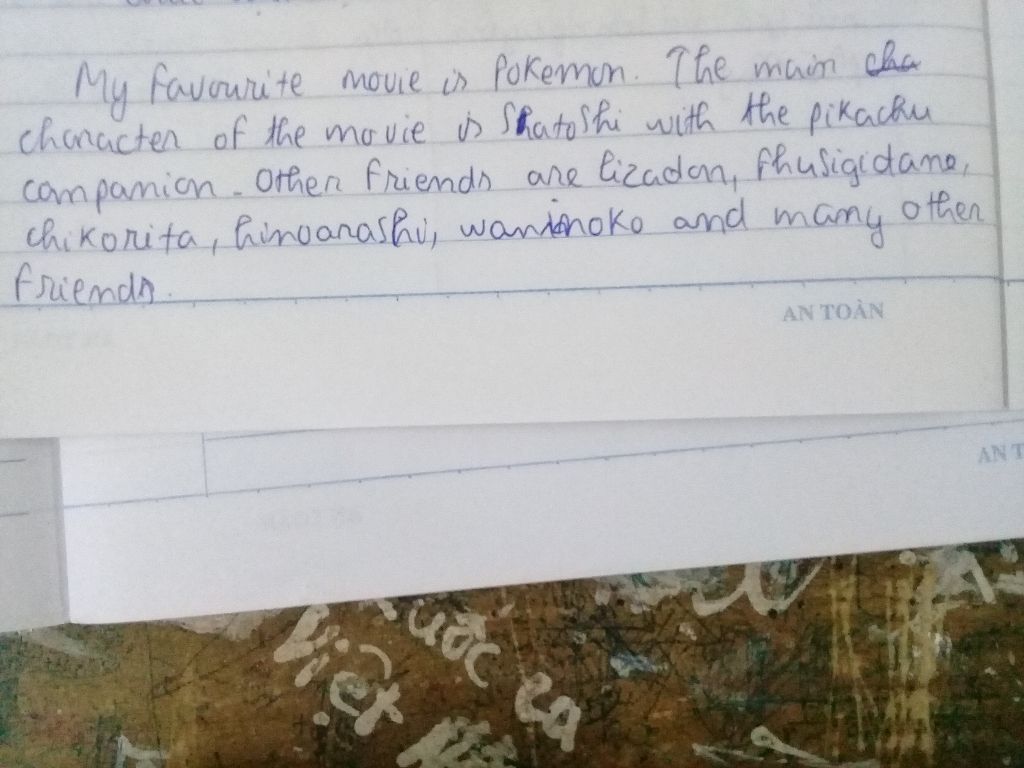 My favourite movie is Pokemon. The main cha
character of the movie is Shatoshi with the pikachu
companion. Other friends are lizadon, fhusigidane,
chikorita, hinoarashi, waninoko and many other
friends.
AN TOÀN
AN T
Việt